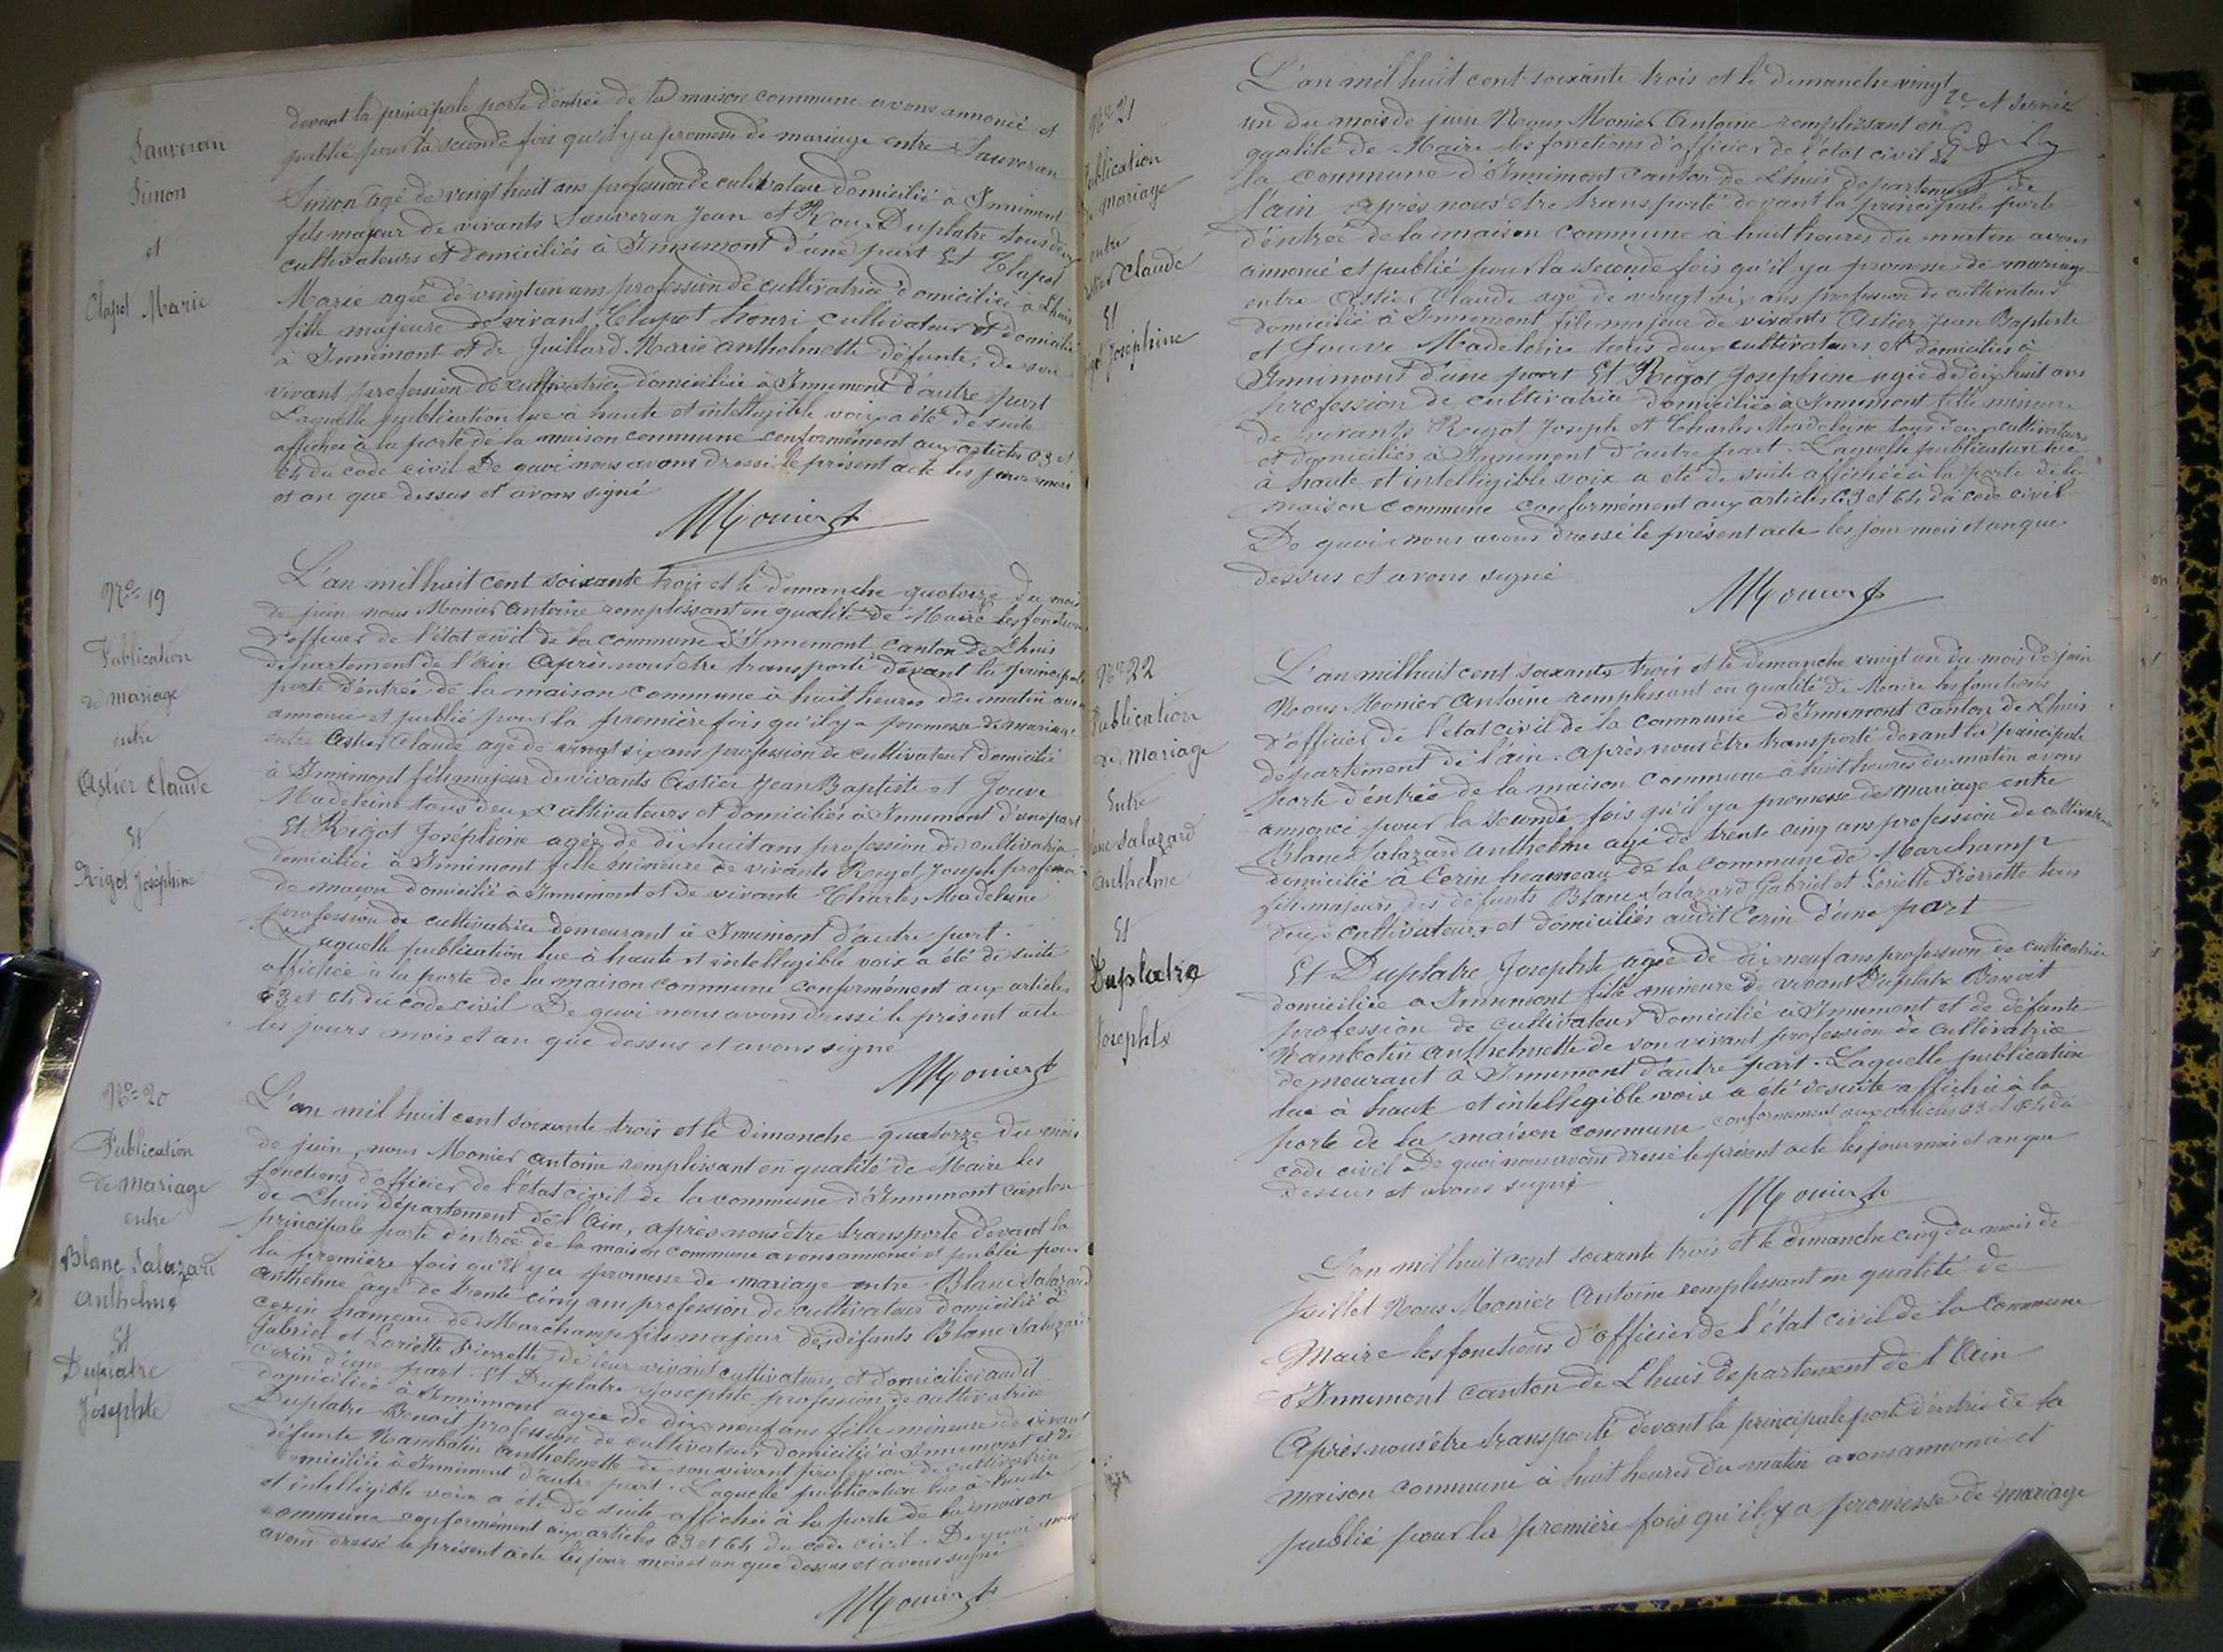 Sauveran
Simon
et
Clapot Marie
devant la principale porte d'entrée de la maison commune avons annoncé et
publié pour la seconde fois qu'il y a promesse de mariage entre Sauveran
Simon agé de vingt huit ans profession de cultivateur domicilié à Innimont
fils majeur de vivants Sauveran Jean et Duplatre tous deux
cultivateurs et domiciliés à Innimont d'une part Et Clapot
Marie agée de vingt un ans profession de cultivatrice domiciliée à Lhuis
fille majeure de vivant Clapot henri cultivateur et domicilié
à Innimont et de Juillard Marie anthelmette défunte, de son
vivant profession de cultivatrice domiciliée à Innimont d'autre part
Laquelle publication lue à haute et intelligible voix a été de suite
affichée à la porte de la maison commune conformément aux articles 63 et
64 du code civil De quoi nous avons dressé le présent acte les jour mois
et an que dessus et avons signé
Monier
No= 19
Publication
de mariage
entre
Astier Claude
Et
Rigot Joséphine
L'an mil huit cent soixante trois et le dimanche quatorze du mois
de juin nous Monier Antoine remplissant en qualité de Maire les fonctions
d'officier de l'état civil de la commune d'Innimont canton de Lhuis
département de l'ain Après nous être transporté devant la principale
porte d'entrée de la maison commune à huit heures du matin avons
annoncé et publié pour la première fois qu'il y a promesse de mariage
entre Astier Claude agé de vingt six ans profession de cultivateur domicilié
à Innimont fils majeur de vivants Astier Jean Baptiste et Jouve
Madeleine tous deux cultivateurs et domiciliés à Innimont d'une part
Et Rigot Joséphine agée de dix huit ans profession de cultivatrice
domiciliée à Innimont fille mineure de vivants Rigot Joseph profession
de maçon domicilié à Innimont et de vivante Charles Madeleine
profession de cultivatrice demeurant à Innimont d'autre part.
Laquelle publication lue à haute et intelligible voix a été de suite
affichée à la porte de la maison commune conformément aux articles
63 et 64 du code civil De quoi nous avons dressé le présent acte
les jours mois et an que dessus et avons signé
Monier
No= 20
Publication
de mariage
entre
Blanc Salazard
anthelme
Et
Duplatre
Josephte
L'an mil huit cent soixante trois et le dimanche quatorze du mois
de juin, nous Monier Antoine remplissant en qualité de Maire les
fonctions d'officier de l'état civil de la commune d'Innimont canton
de Lhuis département de l'Ain, après nous être transporté devant la
principale porte d'entrée de la maison commune avons annoncé et publié pour
la première fois qu'il y a promesse de mariage entre Blanc Salazard
Anthelme agé de trente cinq ans profession de cultivateur domicilié à
Cerin hameau de Marchamp fils majeur des défunts Blanc Salazard
Gabriel et Loriette Pierrette de leur vivant cultivateurs et domiciliés audit
Cerin d'une part. Et Duplatre Josephte profession de cultivatrice
domiciliée à Innimont agée de dix neuf ans fille mineure de vivant
Duplatre Benoit profession de cultivateur domicilié à Innimont et de
défunte Rambotin anthelmette de son vivant profession de cultivatrice
domiciliée à Innimont d'autre part. Laquelle publication lue à haute
et intelligible voix a été de suite affichée à la porte de la maison
commune conformément aux articles 63 et 64 du code civil. De quoi nous
avons dressé le présent acte les jour mois et an que dessus et avons signé
Monier
No= 21
Publication
de mariage
entre
Astier Claude
Et
Rigot Joséphine
L'an mil huit cent soixante trois et le dimanche vingt
2e et dernier
un du mois de juin Nous Monier Antoine remplissant en
qualité de Maire les fonctions d'officier de l'état civil de
la commune d'Innimont canton de Lhuis département de
l'ain après nous être transporté devant la principale porte
d'entrée de la maison commune à huit heures du matin avons
annoncé et publié pour la seconde fois qu'il y a promesse de mariage
entre Astier Claude agé de vingt six ans profession de cultivateur
domicilié à Innimont fils majeur de vivants Astier Jean Baptiste
et Jouve Madeleine tous deux cultivateurs et domiciliés à
Innimont d'une part Et Rigot Joséphine agée de dix huit ans
profession de cultivatrice domiciliée à Innimont fille mineure
de vivants Rigot Joseph et Charles Madeleine tous deux cultivateurs
et domiciliés à Innimont d'autre part. Laquelle publication lue
à haute et intelligible voix a été de suite affichée à la porte de la
maison commune conformément aux articles 63 et 64 du code civil
De quoi nous avons dressé le présent acte les jour mois et an que
dessus et avons signé
Monier
No= 22
Publication
de Mariage
Entre
Blanc Salazard
Anthelme
Et
Duplatre
Josephte
L'an mil huit cent soixante trois et le dimanche vingt un du mois de juin
Nous Monier Antoine remplissant en qualité de Maire les fonctions
d'officier de l'état civil de la commune d'Innimont canton de Lhuis
département de l'ain. Après nous être transporté devant la principale
porte d'entrée de la maison commune à huit heures du matin avons
annoncé pour la seconde fois qu'il y a promesse de mariage entre
Blanc Salazard anthelme agé de trente cinq ans profession de cultivateur
domicilié à Cerin heameau de la commune de Marchamp
fils majeurs des défunts Blanc Salazard Gabriel et Loriette Pierrette tous
deux cultivateurs et domiciliés audit Cerin d'une part
Et Duplatre Josephte agée de dix neuf ans profession de cultivatrice
domiciliée à Innimont fille mineure de vivant Duplatre Benoit
profession de cultivateur domicilié à Innimont et de défunte
Rambotin anthelmette de son vivant profession de cultivatrice
demeurant à Innimont d'autre part. Laquelle publication
lue à haute et intelligible voix a été de suite affichée à la
porte de la maison commune conformément aux articles 63 et 64 du
code civil De quoi nous avons dressé le présent acte les jour mois et an que
dessus et avons signé
Monier
L'an mil huit cent soixante trois et le dimanche cinq du mois de
juillet Nous Monier Antoine remplissant en qualité de
Maire les fonctions d'officier de l'état civil de la commune
d'Innimont canton de Lhuis département de l'Ain
Après nous être transporté devant la principale porte d'entrée de la
maison commune à huit heures du matin avons annoncé et
publié pour la première fois qu'il y a promesse de mariage